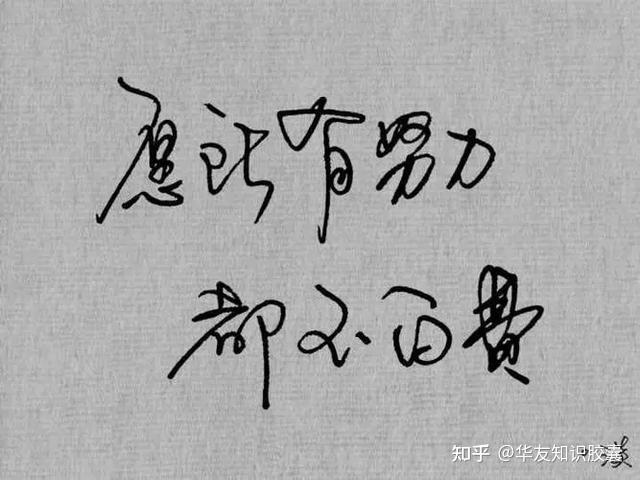 愿所有努力
都不白费
知乎 @华友知识胶囊